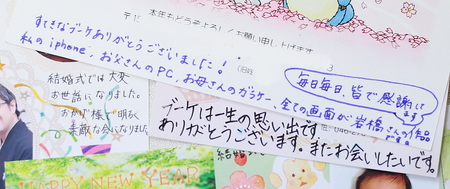 本年もどうぞよろしくお願い申し上げます
〒
3
すてきなブーケありがとうございました!
私のiphone、お父さんのPC、お母さんのガラケー、全ての画面が岩橋さんの作品
毎日毎日、皆で感謝して
ます
結婚式では大変
お世話になりました。
おかげ様で明るく
素敵な会になりました。
ブーケは一生の思い出です。
ありがとうございます。またお会いしたいです。
NEW YEAR
結婚